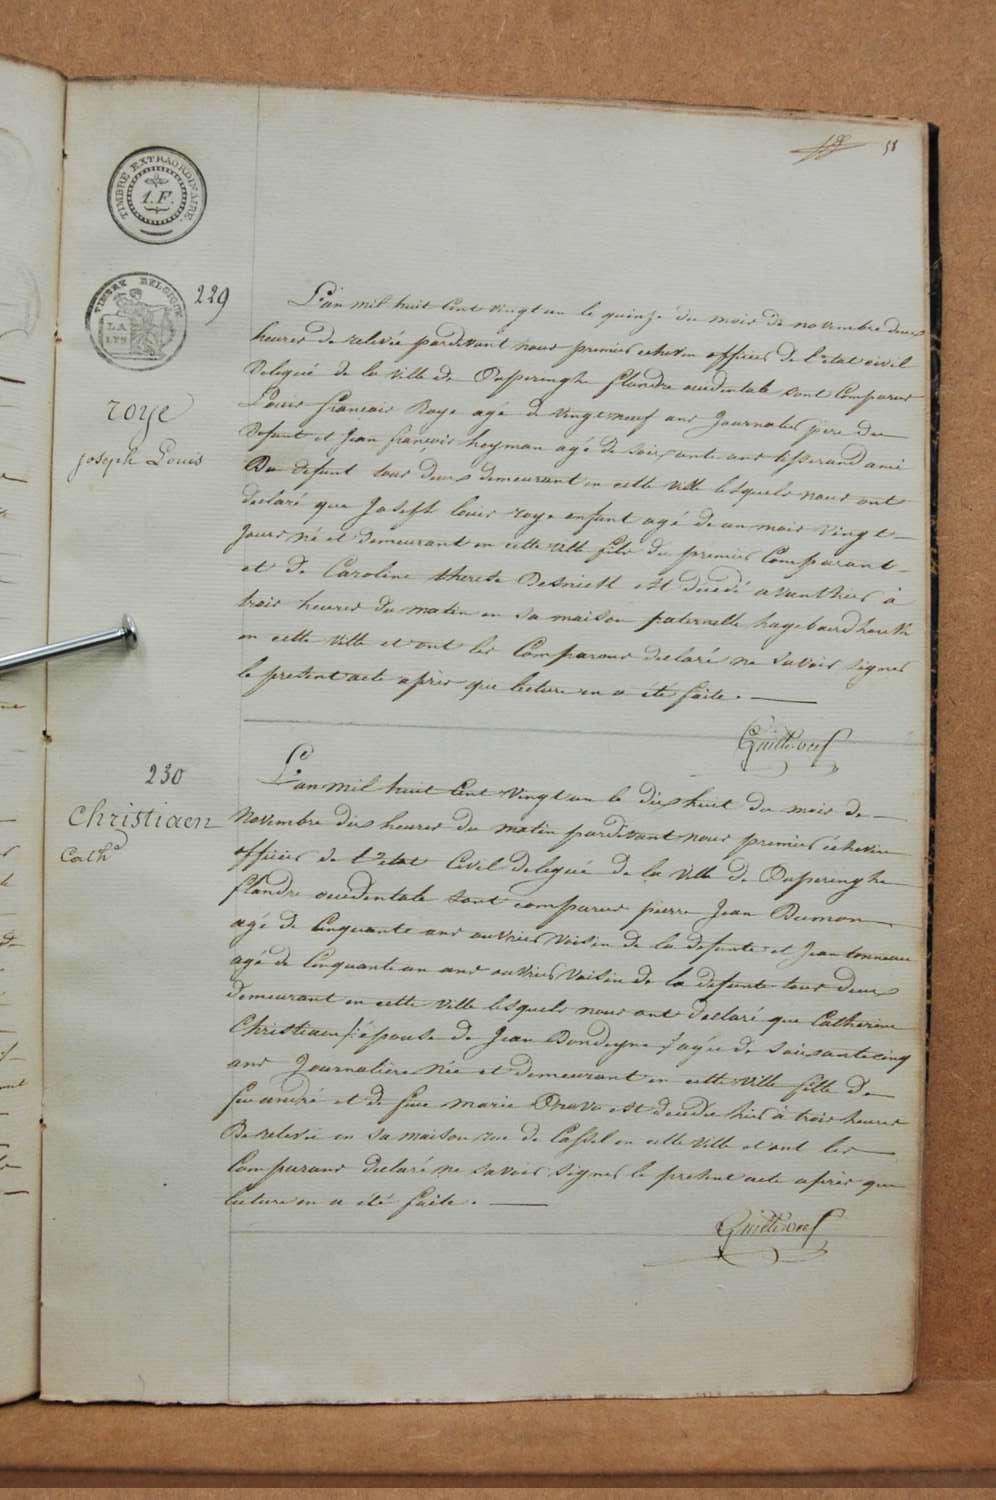 58
TIMBRE EXTRAORDINAIRE.
1.F.
TIMBRE BELGIQUE
LA
LYS
229
roye
joseph Louis
L'an mil huit Cent vingt un le quinze du mois de novembre deux
heures de relevée pardevant nous premier echevin officier de l'etat civil
Delegué de la ville de Poperinghe flandre occidentale sont Comparus
Louis françois Roye agé de vingt neuf ans Journalier pere du
defunt et Jean françois heyman agé de soixante ans tisserand ami
Du defunt tous deux demeurant en cette ville lesquels nous ont
declaré que Joseph louis roye enfant agé de un mois vingt
jours né et demeurant en cette ville fils du premier Comparant
et de Caroline therese Desniett est décédé avanthier à
trois heures du matin en sa maison paternelle hagebaerdhouck
en cette ville et ont les Comparans declaré ne savoir signer
le present acte après que lecture en a été faite.
230
Christiaen
Cath.e
L'an mil huit Cent vingt un le dix huit du mois de
Novembre dix heures du matin pardevant nous premier échevin
officier de l'etat Civil delegué de la ville de Poperinghe
flandre occidentale sont comparus pierre Jean Dumon
agé de Cinquante ans ouvrier voisin de la defunte et Jean tonneau
agé de Cinquante un ans ouvrier voisin de la defunte tous deux
demeurant en cette ville lesquels nous ont declaré que Catherine
Christiaen /: épouse de Jean Dondeyne :/ agée de soixante cinq
ans Journalière Née et demeurant en cette ville fille de
feu andré et de feue marie Prove est décédée hier à trois heures
De relevée en sa maison rue de Cassel en cette ville et ont les
Comparans declaré ne savoir signer le present acte après que
lecture en a été faite.